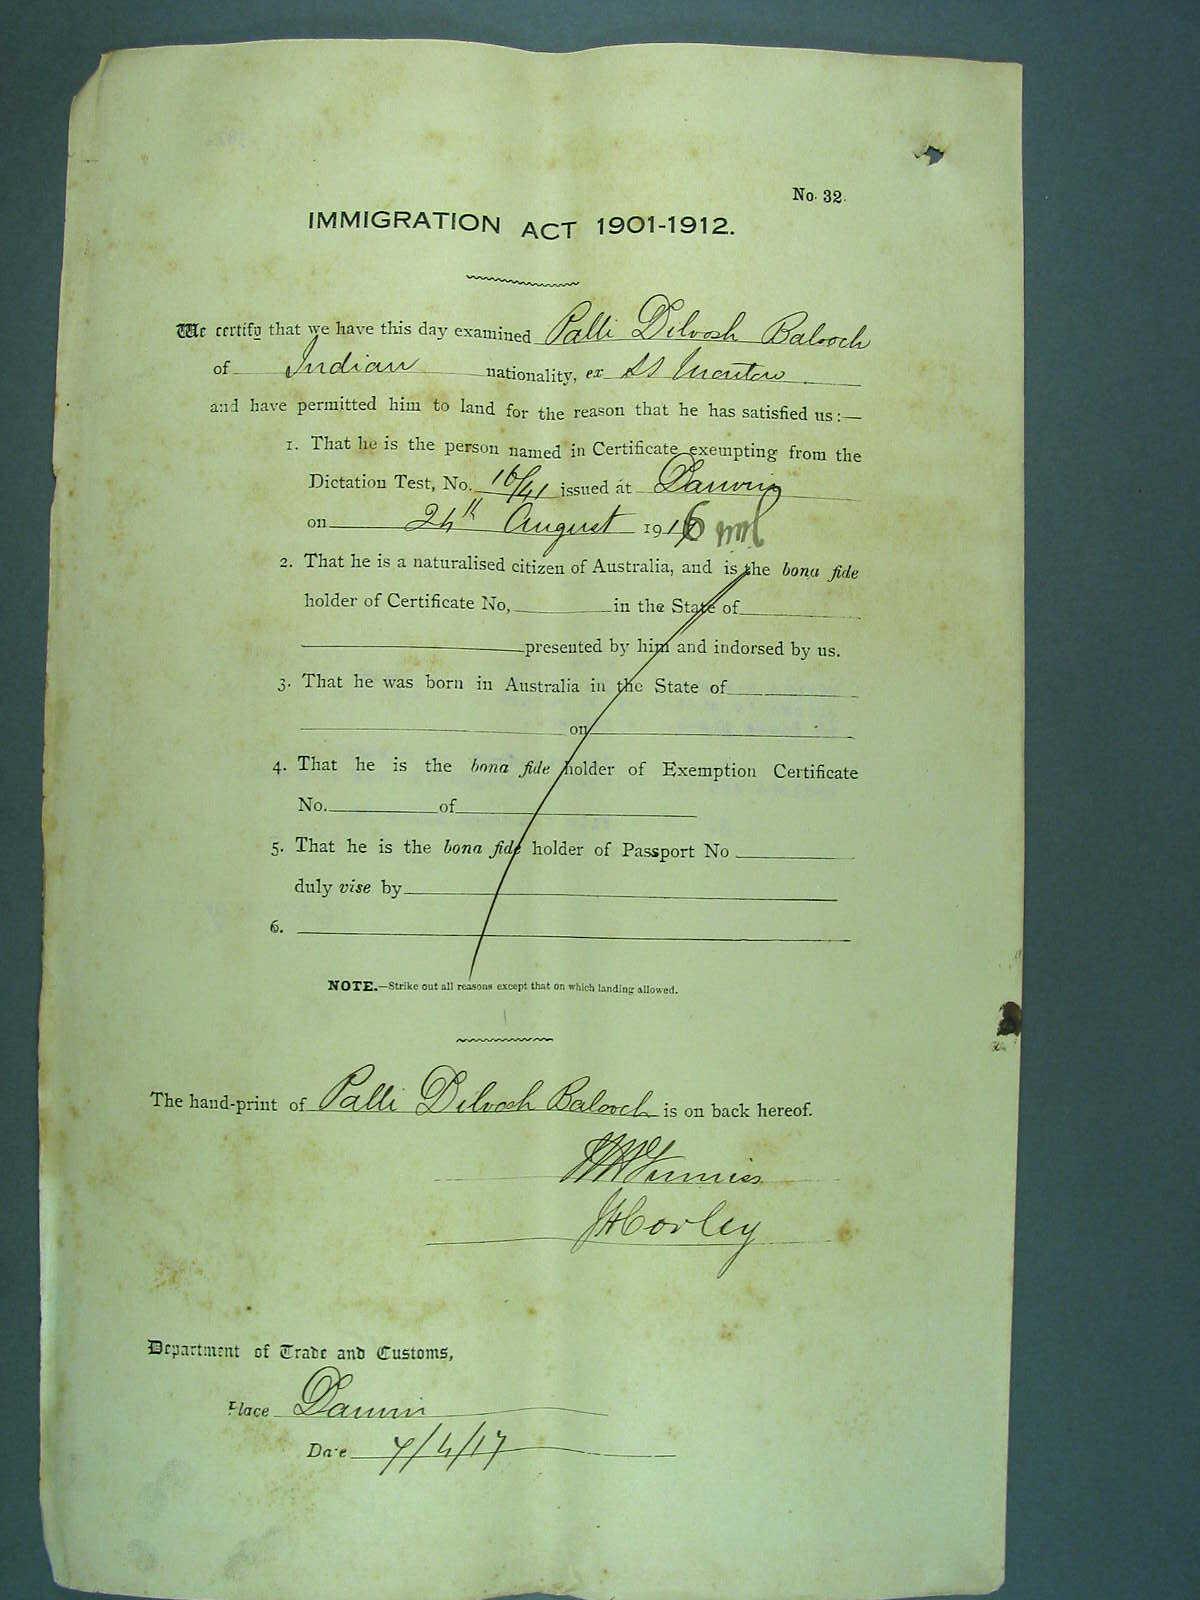 No. 32.
IMMIGRATION ACT 1901-1912.
We certify that we have this day examined Palli Dilvosh Balooch
of Indian nationality, ex SS Montoro
and have permitted him to land for the reason that he has satisfied us:—
1. That he is the person named in Certificate exempting from the
Dictation Test, No. 16/41 issued at Darwin
on 24th August 1916
2. That he is a naturalised citizen of Australia, and is the bona fide
holder of Certificate No, in the State of
presented by him and indorsed by us.
3. That he was born in Australia in the State of
on
4. That he is the bona fide holder of Exemption Certificate
No. of
5. That he is the bona fide holder of Passport No
duly vise by
6.
NOTE.—Strike out all reasons except that on which landing allowed.
The hand-print of Palli Dilvosh Balooch is on back hereof.
JHCorley
Department of Trade and Customs,
Place Darwin
Date 7/4/17